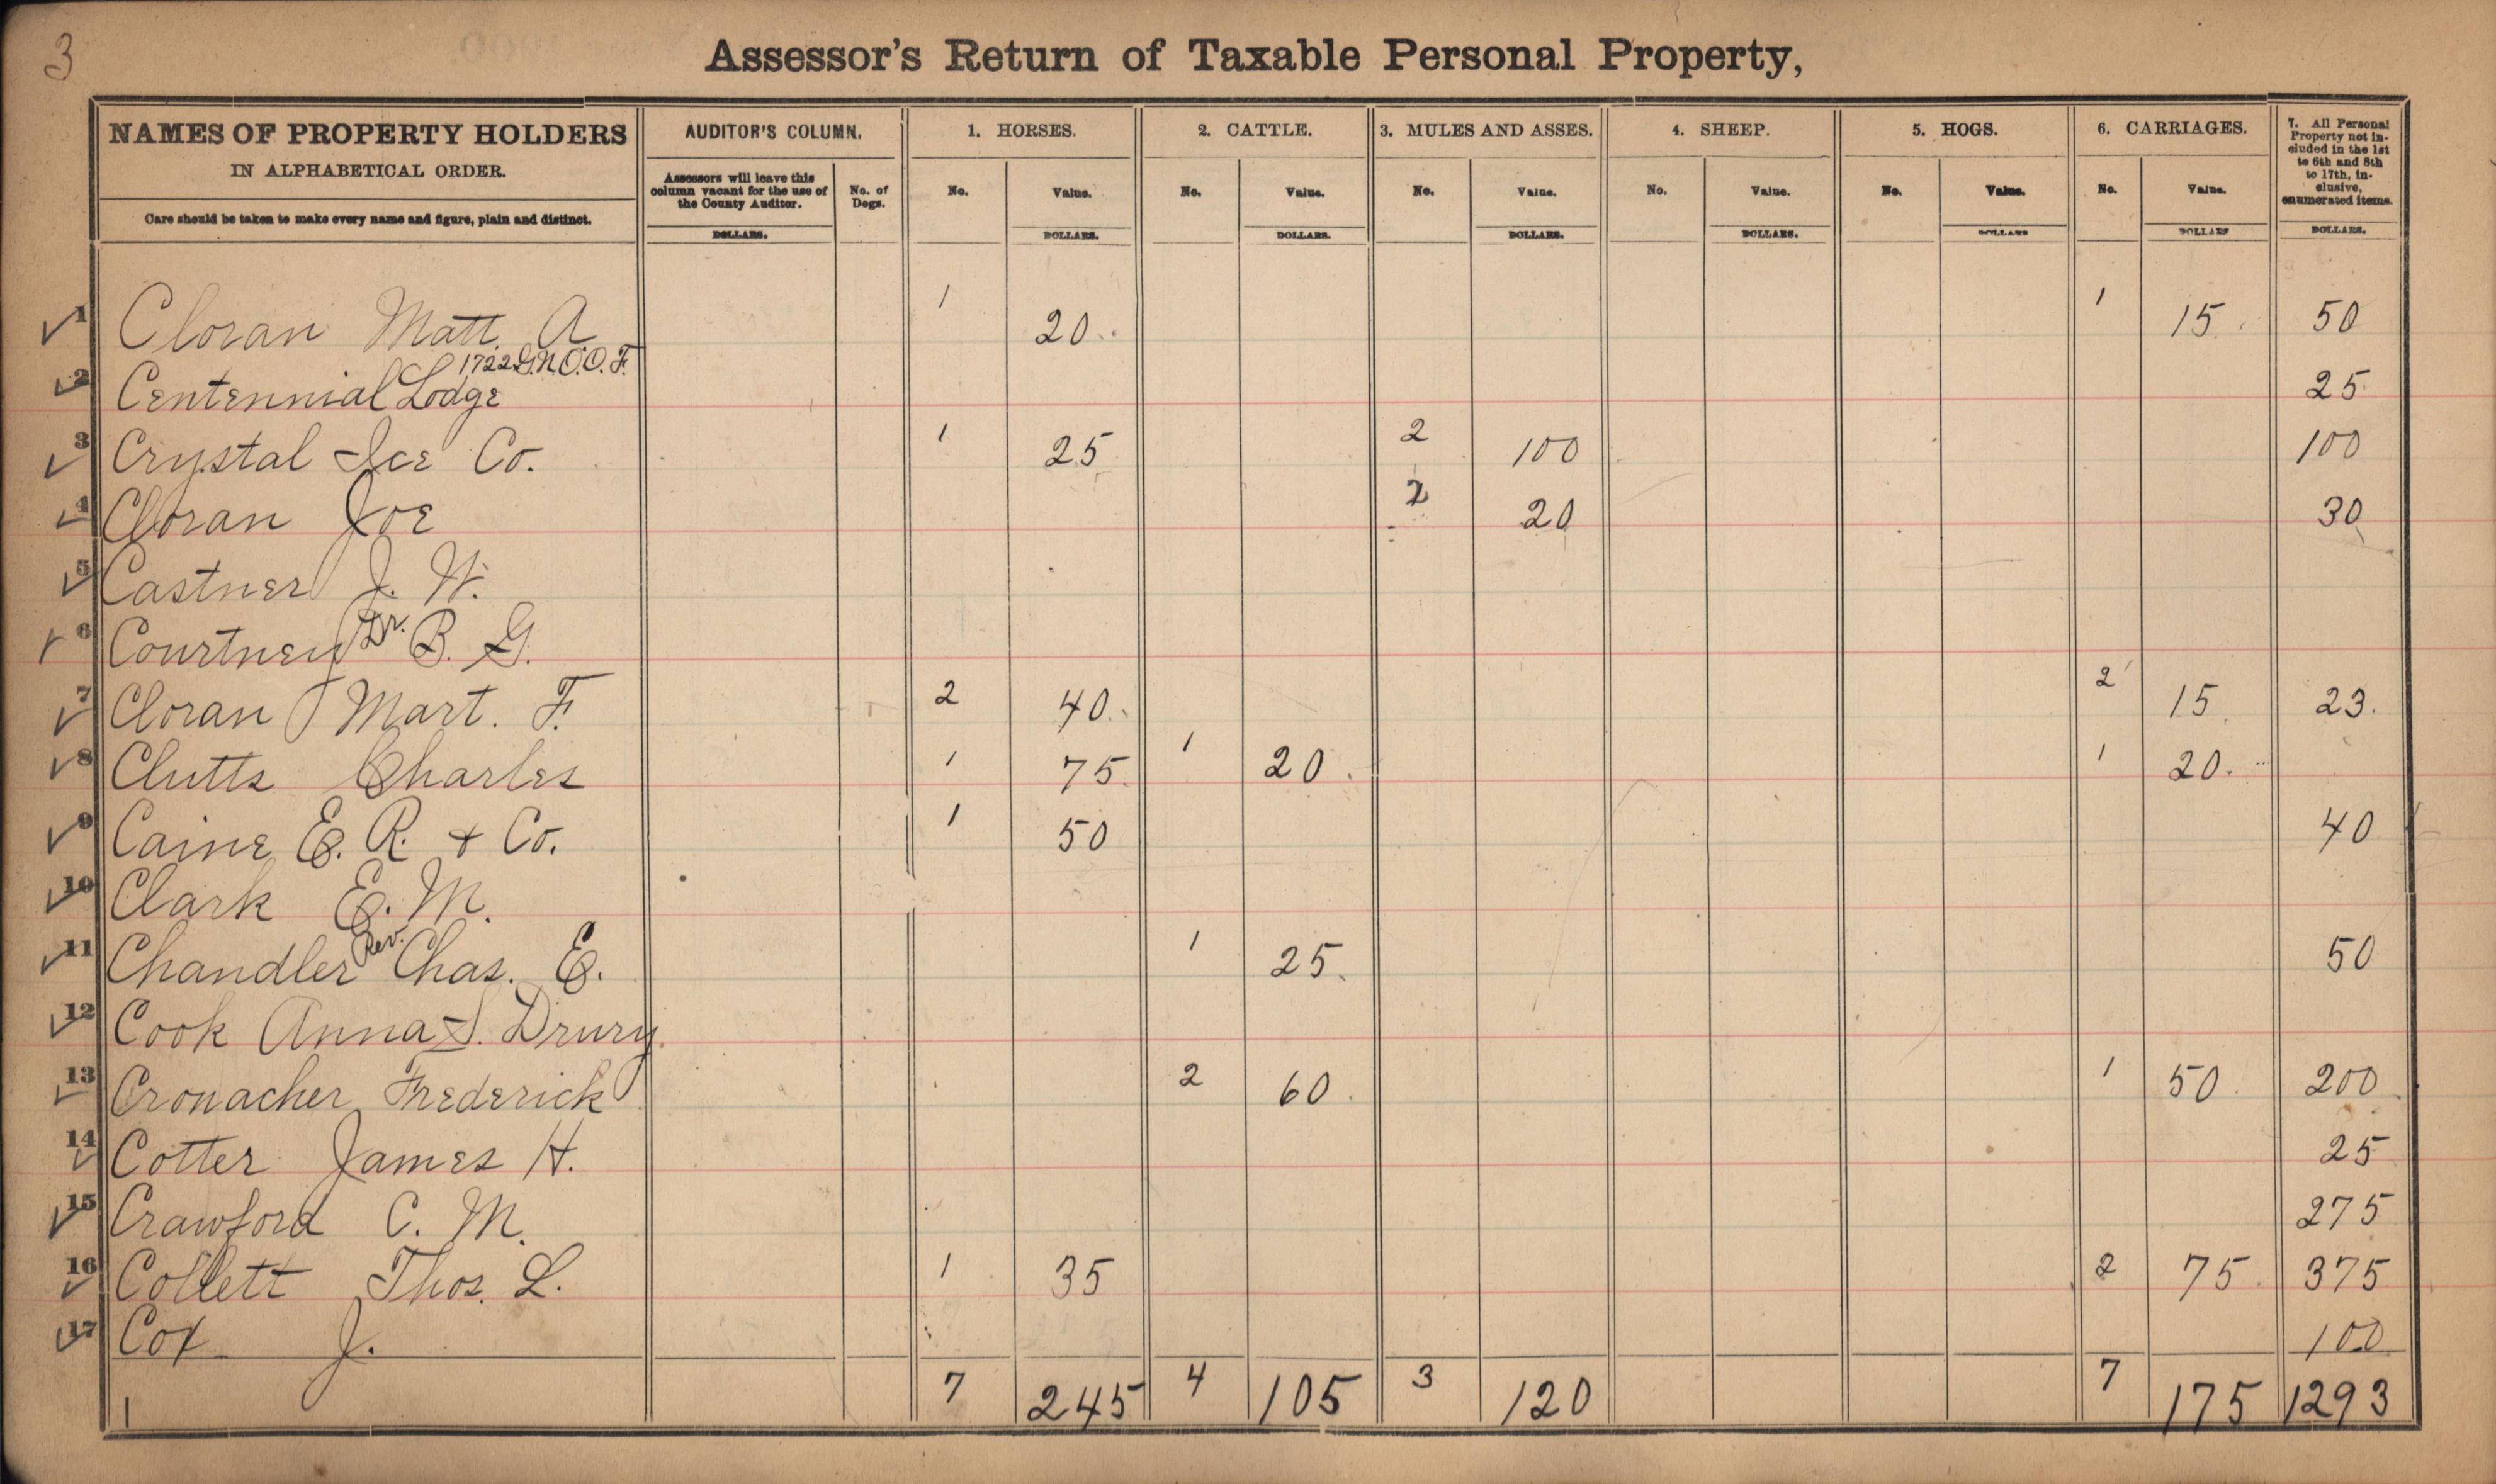 3
Assessor's Return of Taxable Personal Property,
NAMES OF PROPERTY HOLDERS
IN ALPHABETICAL ORDER.
Care should be taken to make every name and figure, plain and distinct.
AUDITOR'S COLUMN.
Assessors will leave this
column vacant for the use of
the County Auditor.
DOLLARS.
No. of
Dogs.
1. HORSES.
No. Value.
DOLLARS.
2. CATTLE.
No. Value.
DOLLARS.
3. MULES AND ASSES.
No. Value.
DOLLARS.
4. SHEEP.
No. Value.
DOLLARS.
5. HOGS.
No. Value.
DOLLARS
6. CARRIAGES.
No. Value.
DOLLARS
7. All Personal
Property not in-
cluded in the 1st
to 6th and 8th
to 17th, in-
clusive,
enumerated items.
DOLLARS.
1 Cloran Matt. A 1 20 1 15 50
2 Centennial Lodge 1722 G.N.O.O.F. 25
3 Crystal Ice Co. 1 25 2 100 100
4 Cloran Joe 2 20 30
5 Castner J. W.
6 Courtney Dr. B. G.
7 Cloran Mart. F. 2 40 2 15 23
8 Clutts Charles 1 75 1 20 1 20
9 Caine E. R. + Co. 1 50 40
10 Clark E. M.
11 Chandler Rev. Chas. E. 1 25 50
12 Cook Anna S. Drury
13 Cronacher Frederick 2 60 1 50 200
14 Cotter James H. 25
15 Crawford C. M. 275
16 Collett Thos. L. 1 35 2 75 375
17 Cox J. 100
7 245 4 105 3 120 7 175 1293